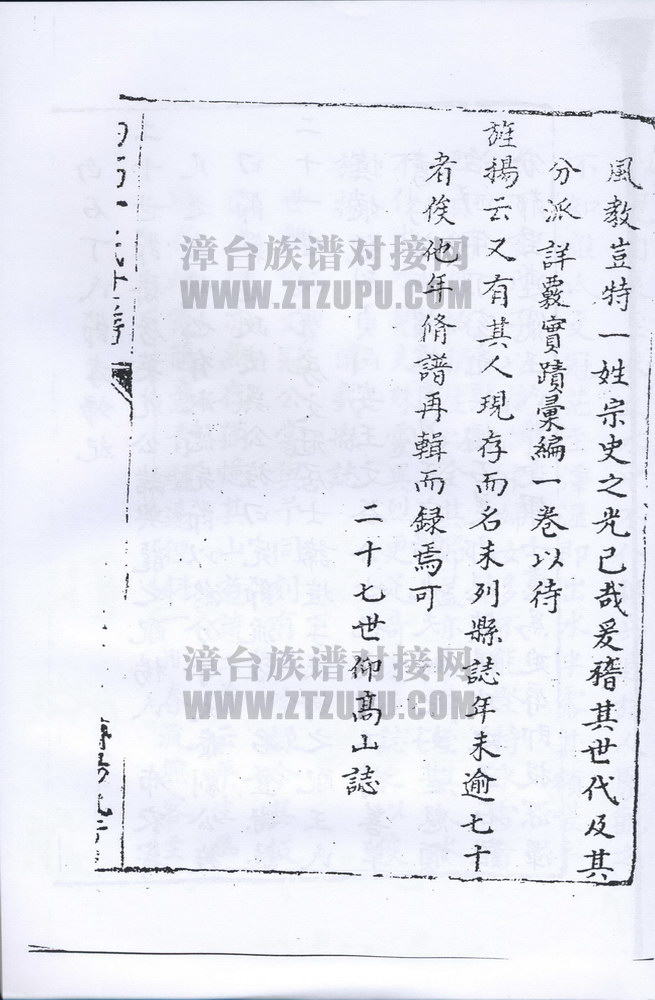 風教豈特一姓宗史之光已哉爰稽其世代及其
分派詳覈實蹟彙編一卷以待
旌揚云又有其人現存而名未列縣誌年未逾七十
者俟他年脩譜再輯而録焉可
二十七世仰髙山誌
漳台族谱对接网
WWW.ZTZUPU.COM
漳台族谱对接网
WWW.ZTZUPU.COM